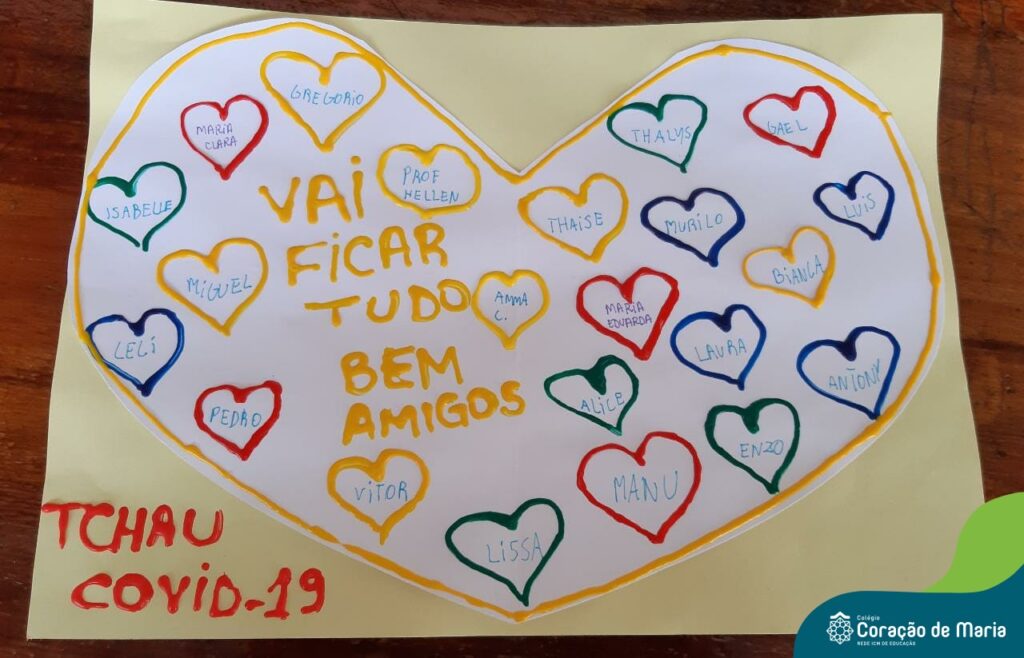 GREGORIO
MARIA
CLARA
THALYS
GAEL
PROF
HELLEN
ISABELLE
VAI
FICAR
TUDO
BEM
AMIGOS
THAISE
MURILO
LUIS
BIANCA
MIGUEL
ANNA
C.
MARIA
EDUARDA
LELI
LAURA
ANTONY
PEDRO
ALICE
ENZO
VITOR
MANU
LISSA
TCHAU
COVID-19
Colégio
Coração de Maria
REDE ICM DE EDUCAÇÃO